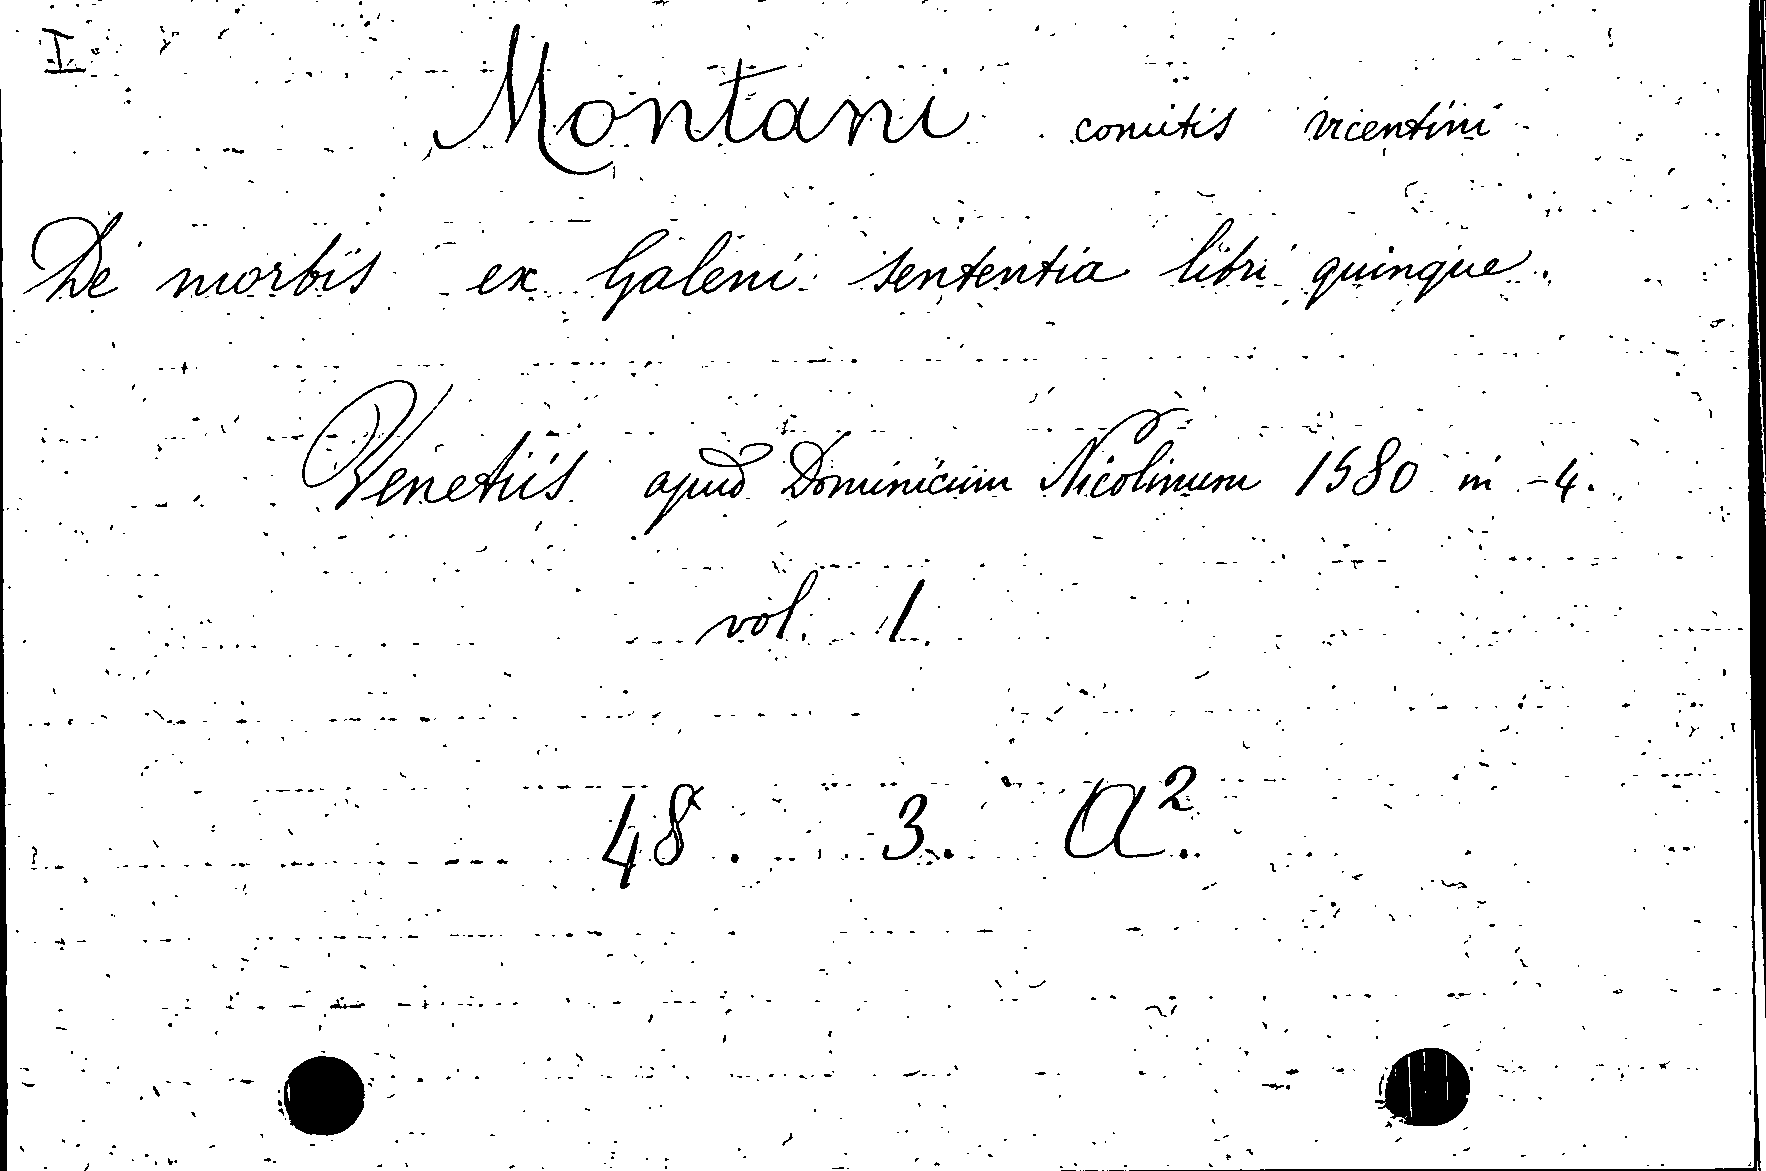 I
Montani comitis vicentini
De morbis ex Galeni sententia libri quinque.
Venetiis apud Dominicum Nicolinum 1580 in-4.
vol. 1.
48. 3. A².